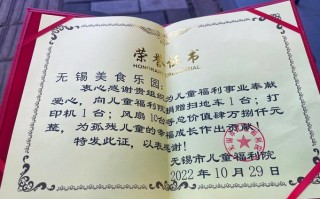 荣誉证书
HONORARY CREDENTIAL
无锡美食乐图:
衷心感谢贵组织为儿童福利事业奉献
爱心,向儿童福利院捐赠扫地车1台;打
印机1台;风扇10台等总价值肆万捌仟元
整,为孤残儿童的幸福成长作出贡献!
特发此证,以表感谢!
无锡市儿童福利院
2022年10月29日